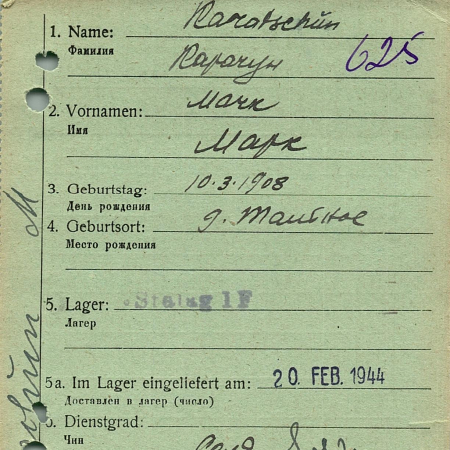 1. Name: Karatschun
Фамилия Карачун 625
2. Vornamen: Марк
Имя Марк
3. Geburtstag: 10.3.1908
День рождения
4. Geburtsort: д.
Место рождения
5. Lager: Stalag 1 F
Лагер
5a. Im Lager eingeliefert am: 20. FEB. 1944
Доставлен в лагер (число)
6. Dienstgrad:
Чин